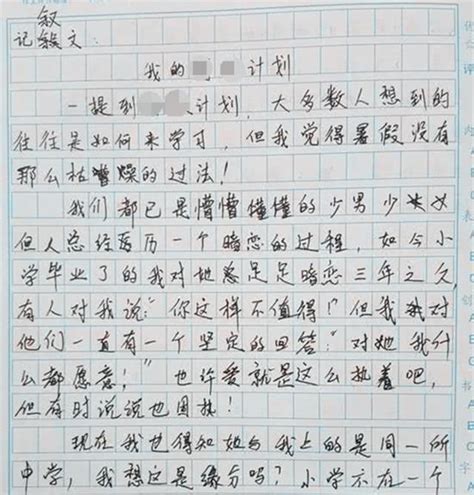 叙
记文：
我的计划
一提到计划，大多数人想到的
往往是如何来学习，但我觉得暑假没有
那么枯燥的过法！
我们都已是懵懵懂懂的少男少女
但人总经历一个暗恋的过程，如今小
学毕业了的我对她总足足暗恋三年之久，
有人对我说：“你这样不值得！”但我对
他们一直有一个坚定的回答：“对她我什
么都愿意！”也许爱就是这么执着吧，
但有时说说也固执！
现在我也得知她与我上的是同一所
中学，我想这是缘分吗？小学不在一个